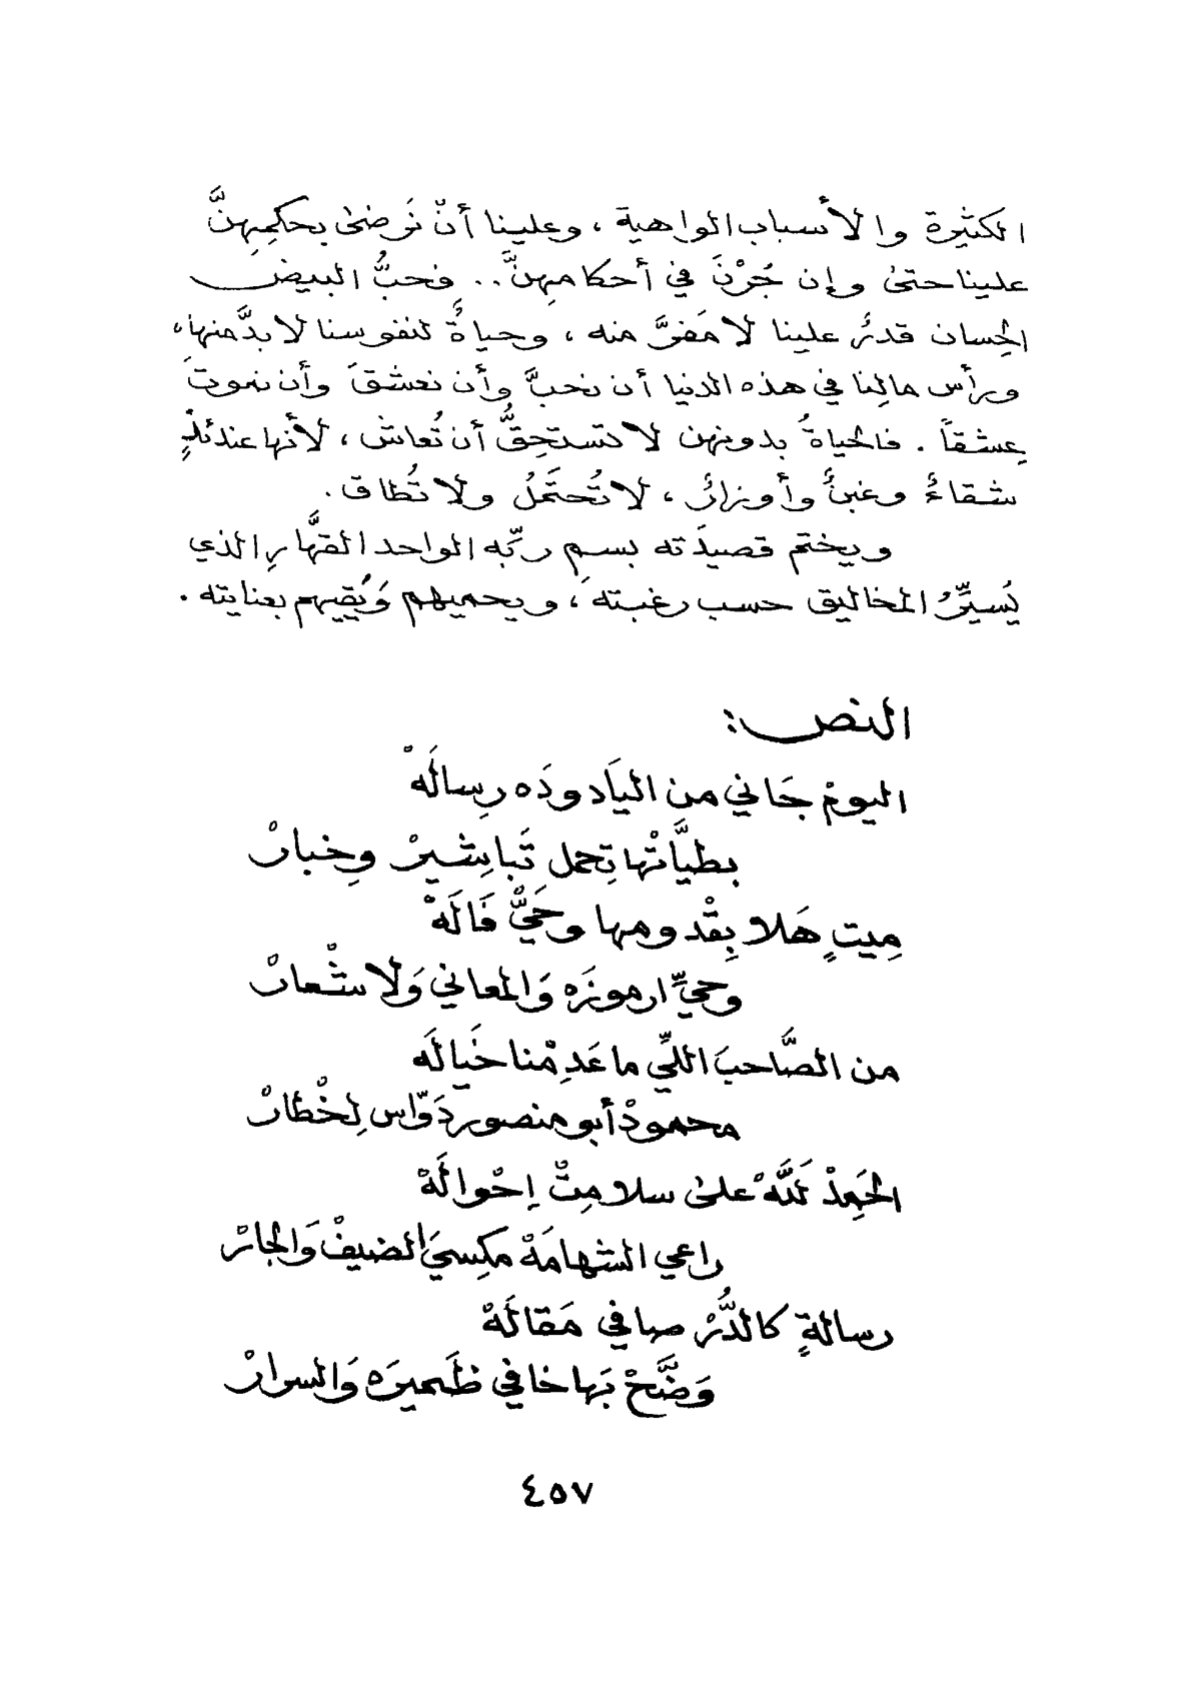 الكثيرة والأسباب الواهية ، وعلينا أنْ نَرضىٰ بحكمِهِنَّ
علينا حتىٰ وإن جُرْنَ في أحكامهِنَّ .. فحبُّ البيض
الحِسان قدرٌ علينا لا مَفرَّ منه ، وحياةٌ لنفوسنا لا بدَّ منها ،
ورأس مالِنا في هذه الدنيا أن نحبَّ وأن نعشقَ وأن نموتَ
عِشقاً . فالحياةُ بدونهن لا تستحِقُّ أن تُعاش ، لأنها عندئذٍ
شقاءٌ وغبنٌ وأوزارٌ ، لا تُحتَملُ ولا تُطاق .
ويختم قصيدَته بسم ربِّه الواحد القهَّارِ الذي
يُسيِّرُ المخاليق حسب رغبته ، ويحميهم وَيَقيهم بعنايته .
النص :
اليومْ جَاني من اليَادودَه رِسالَهْ
بطيَّاتْها تِحمل تَباشيرْ وِخبارْ
مِيتٍ هَلا بِقْدومها وحَيّْ فَالَهْ
وحيِّ ارموزَه وَالمعاني وَلاشْعارْ
من الصَّاحبَ اللّي ما عَدِمْنا خَيالَه
محمودْ أبو منصور دَوّاس لِخْطارْ
الحَمِدْ لَلَّهْ علىٰ سلامِتْ إحْوالَهْ
راعي الشهامَهْ مكِسيَ الضيفْ وَالجارْ
رسالةٍ كالدُّرْ صافي مَقالَهْ
وَضَّحْ بَها خافي ظَميرَه وَالسرارْ
٤٥٧